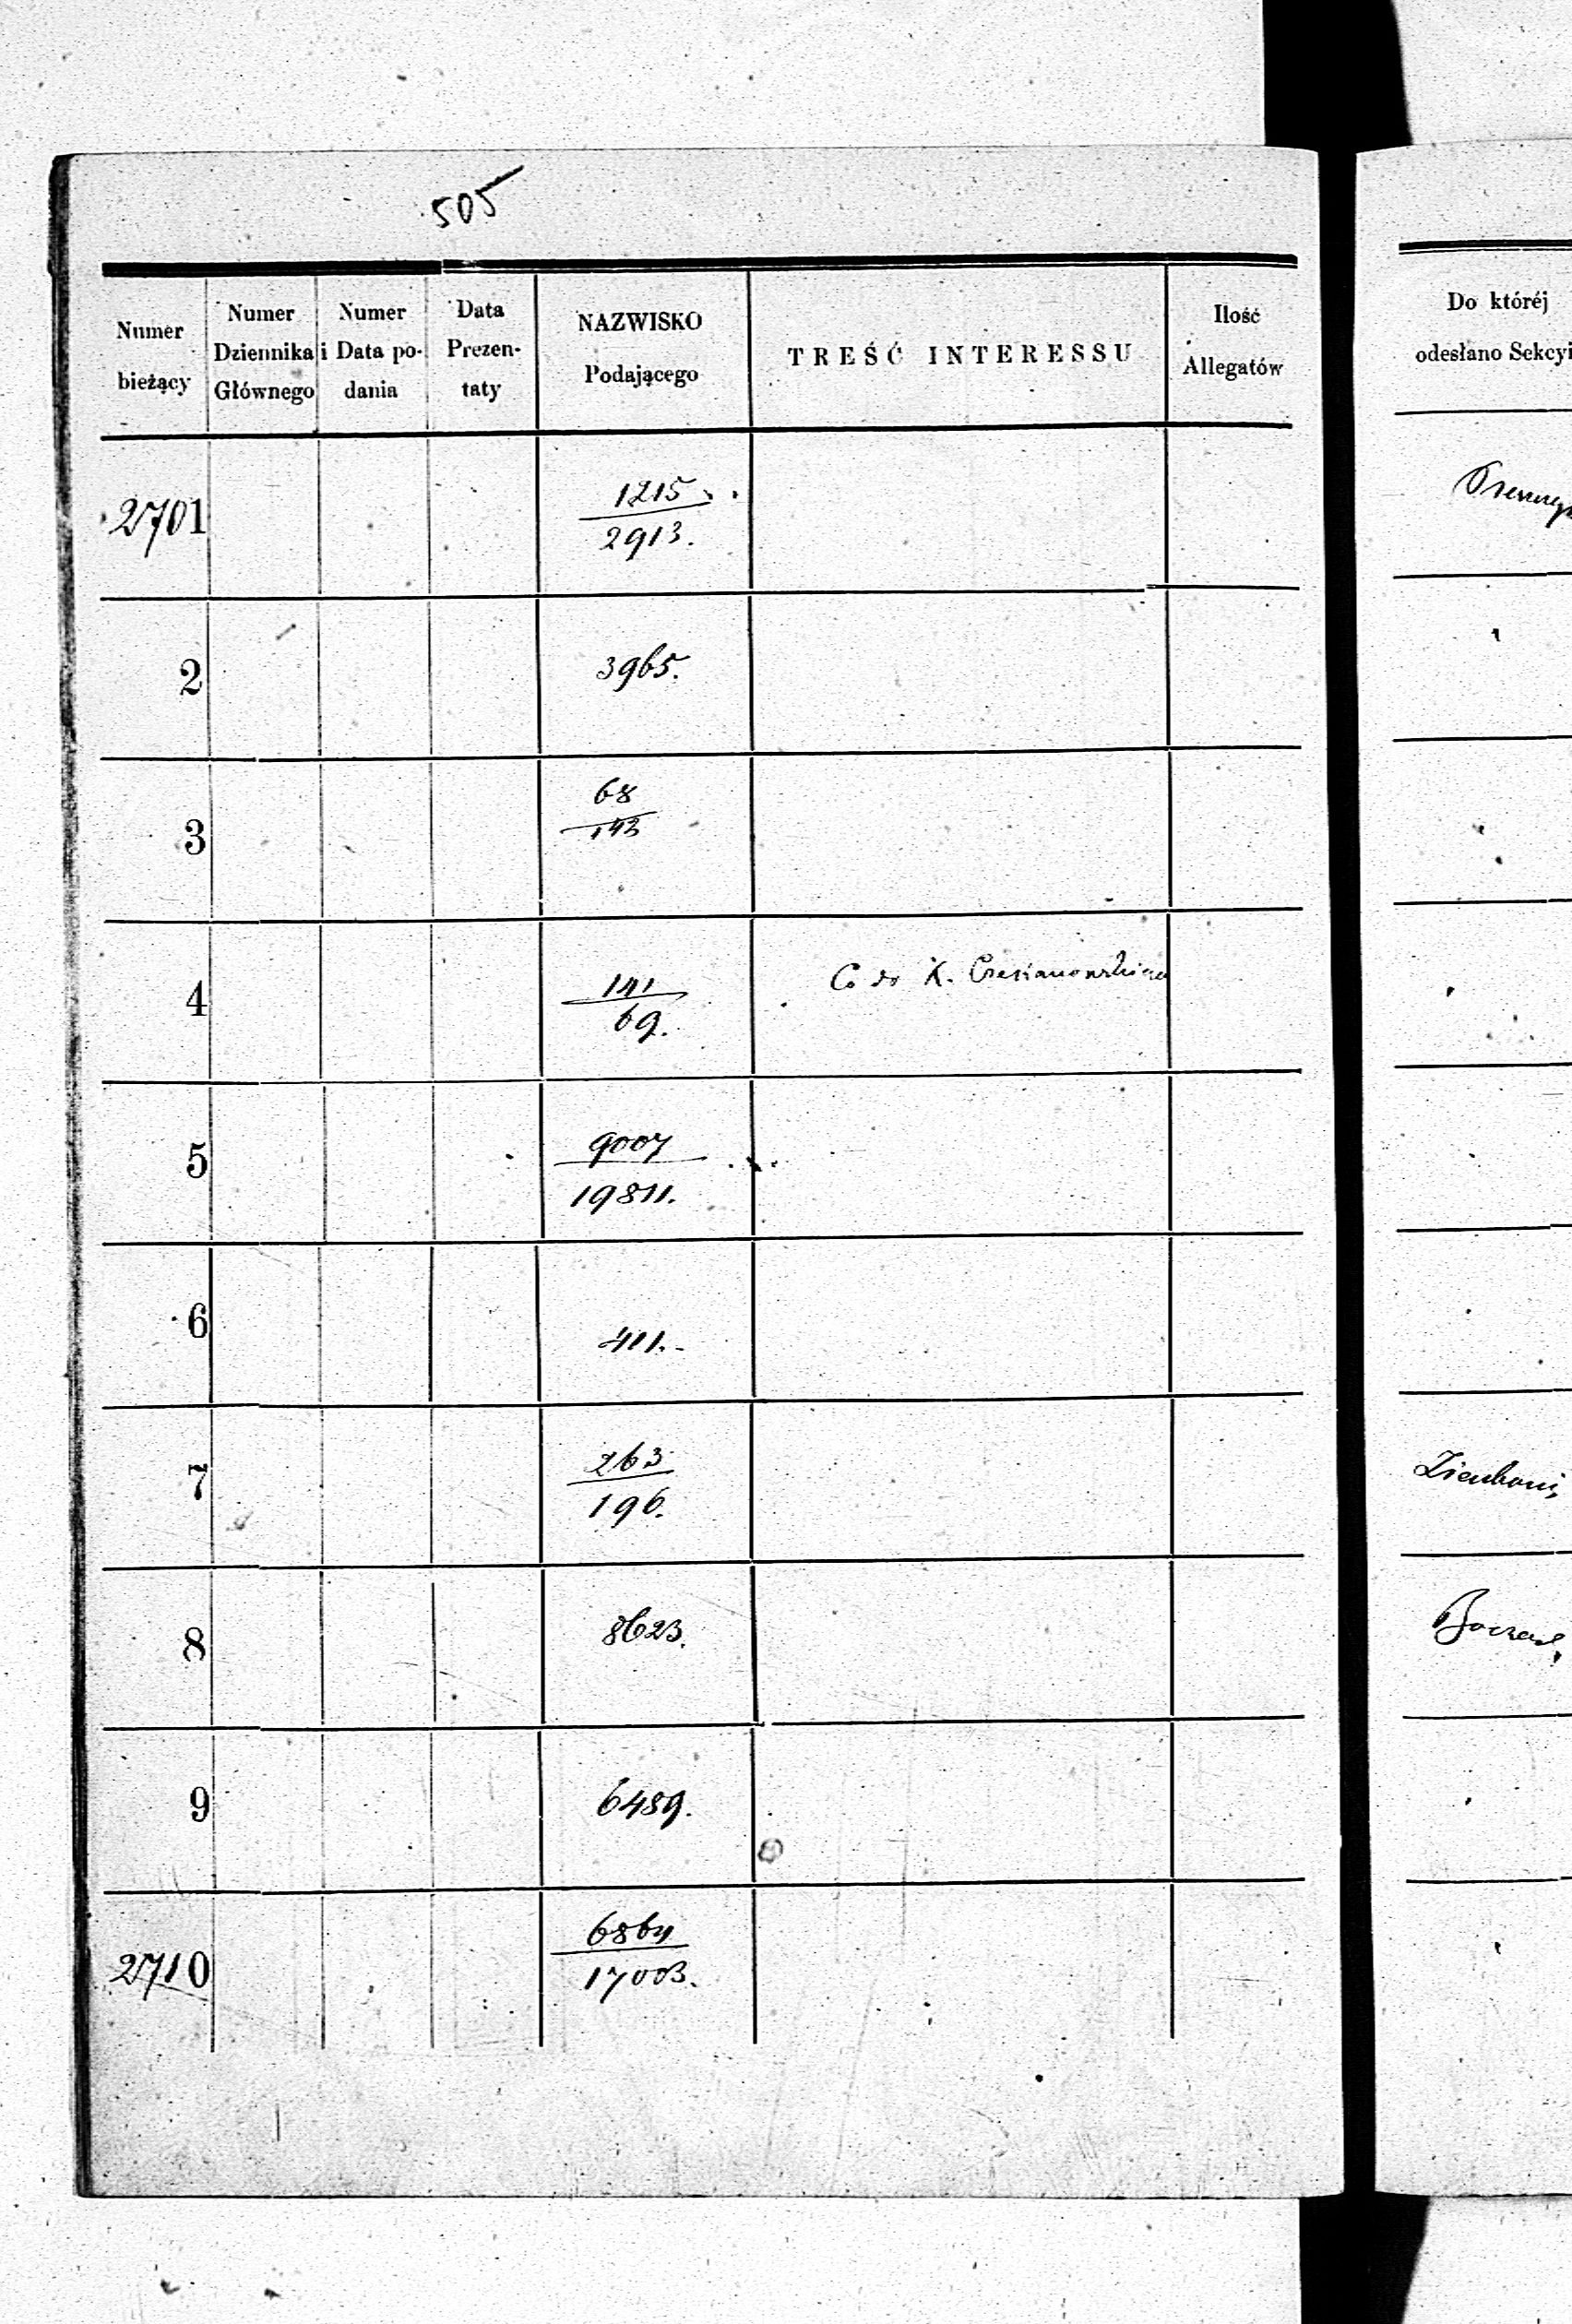 505
Numer bieżący | Numer Dziennika Głównego | Numer i Data podania | Data Prezentaty | NAZWISKO Podającego | TREŚĆ INTERESSU | Ilość Allegatów | Do któréj odesłano Sekcyi
2701 | 1215
2913.
2 | 3965.
3 | 68
143
4 | 141 | Co do X.
69.
5 | 9007
19811.
6 | 411.-
7 | 263
196.
8 | 8623.
9 | 6489.
2710 | 6864
17003.